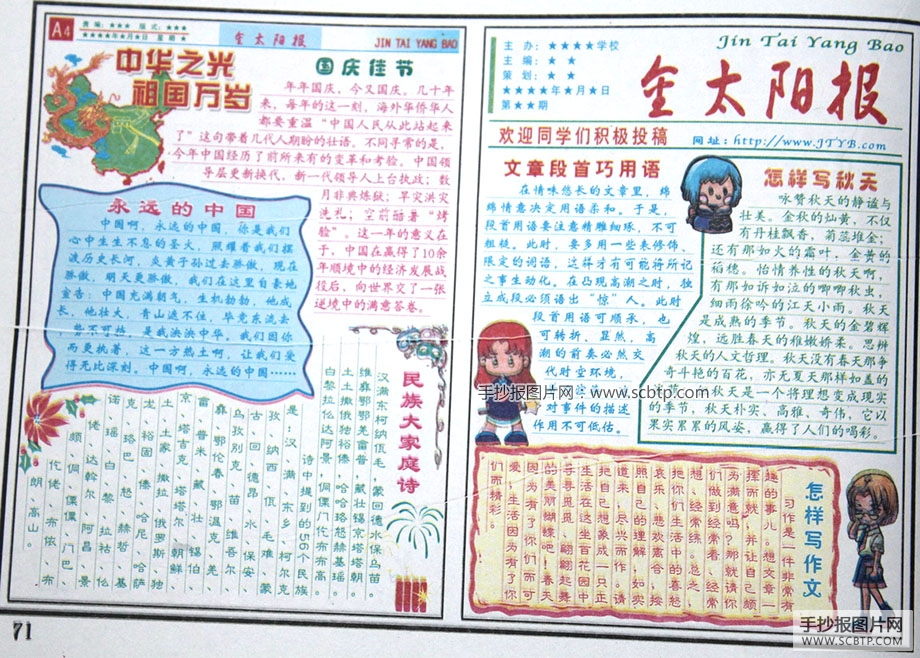 A4
责编：★★★ 版式：★★★
★★★★年★月★日 星期★
金太阳报
JIN TAI YANG BAO
中华之光
祖国万岁
国庆佳节
年年国庆，今又国庆。几十年
来，每年的这一刻，海外华侨华人
都要重温“中国人民从此站起来
了”这句带着几代人期盼的壮语。不同寻常的是，
今年中国经历了前所未有的变革和考验。中国领
导层更新换代，新一代领导人上台执政；数
月非典炼狱；旱灾洪灾
洗礼；空前酷暑“烤
验”。这一年的意义在
于，中国在赢得了10余
年顺境中的经济发展战
役后，向世界交了一张
逆境中的满意答卷。
永远的中国
中国啊，永远的中国，你是我们
心中生生不息的圣火，照耀着我们摆
渡历史长河，炎黄子孙过去骄傲，现在
骄傲，明天更骄傲，我们在这里自豪地
宣告：中国充满朝气，生机勃勃，他成
长，他壮大，青山遮不住，毕竟东流去
——势不可挡，是我泱泱中华，我们因你
而更执著，这一方热土啊，让我们爱
得无比深刻。中国啊，永远的中国……
民族大家庭诗
汉满东柯纳佤毛，蒙回德水保乌苗。
诗中提到的56个民族
是：汉、满、东乡、柯尔克
孜、纳西、佤、毛难、蒙
古、回、德昂、水、保安、
乌孜别克、苗、维吾尔、
彝、鄂伦春、鄂温克、羌、
京、塔吉克、塔塔尔、朝鲜、
71
主办：★★★★学校
主编：★ ★
策划：★ ★
★★★★年★月★日
第★★期
Jin Tai Yang Bao
金太阳报
欢迎同学们积极投稿
网址：http://www.JTYB.com
文章段首巧用语
在情味悠长的文章里，绵
绵情意决定用语柔和。于是，
段首用语要注意精雕细琢，不可
粗糙。此时，要多用一些表修饰、
限定的词语，这样才有可能将所记
之事生动化。在凸现高潮之时，独
立成段必须语出“惊”人。此时
段首用语可顺承，也
可转折、显然，高
潮的前奏必然交
代时空环境，
对事件的描述
作用不可低估。
怎样写秋天
咏赞秋天的静谧与
壮美。金秋的灿黄，不仅
有丹桂飘香，菊蕊堆金；
还有那如火的霜叶，金黄的
稻穗。怡情养性的秋天啊，
有那如诉如泣的唧唧秋虫，
细雨徐吟的江天小雨。秋天
是成熟的季节。秋天的金碧辉
煌，远胜春天的稚嫩娇柔。思辨
秋天的人文哲理。秋天没有春天那争
奇斗艳的百花，亦无夏天那样如盖的
秋天是一个将理想变成现实
的季节。秋天朴实、高雅、奇伟，它以
果实累累的风姿，赢得了人们的喝彩。
手抄报图片网 - www.scbtp.com
怎样写作文
习作是一件非常有
趣的事儿。想文章一
挥而就，并让自己颇
为满意吗？那就请你
们做到经常看、经常
想、经常练。总之，
把你们生活中的喜怒
哀乐、悲欢离合，按
照自己的理解，如实
道来，尽兴而作。请
把自己想象成一只正
生活在这生活花园中
寻寻觅觅、翩翩起舞
的美丽蝴蝶吧！春天
因为有了你们而可
爱，生活因为有了你
们而精彩。
手抄报图片网
WWW.SCBTP.COM